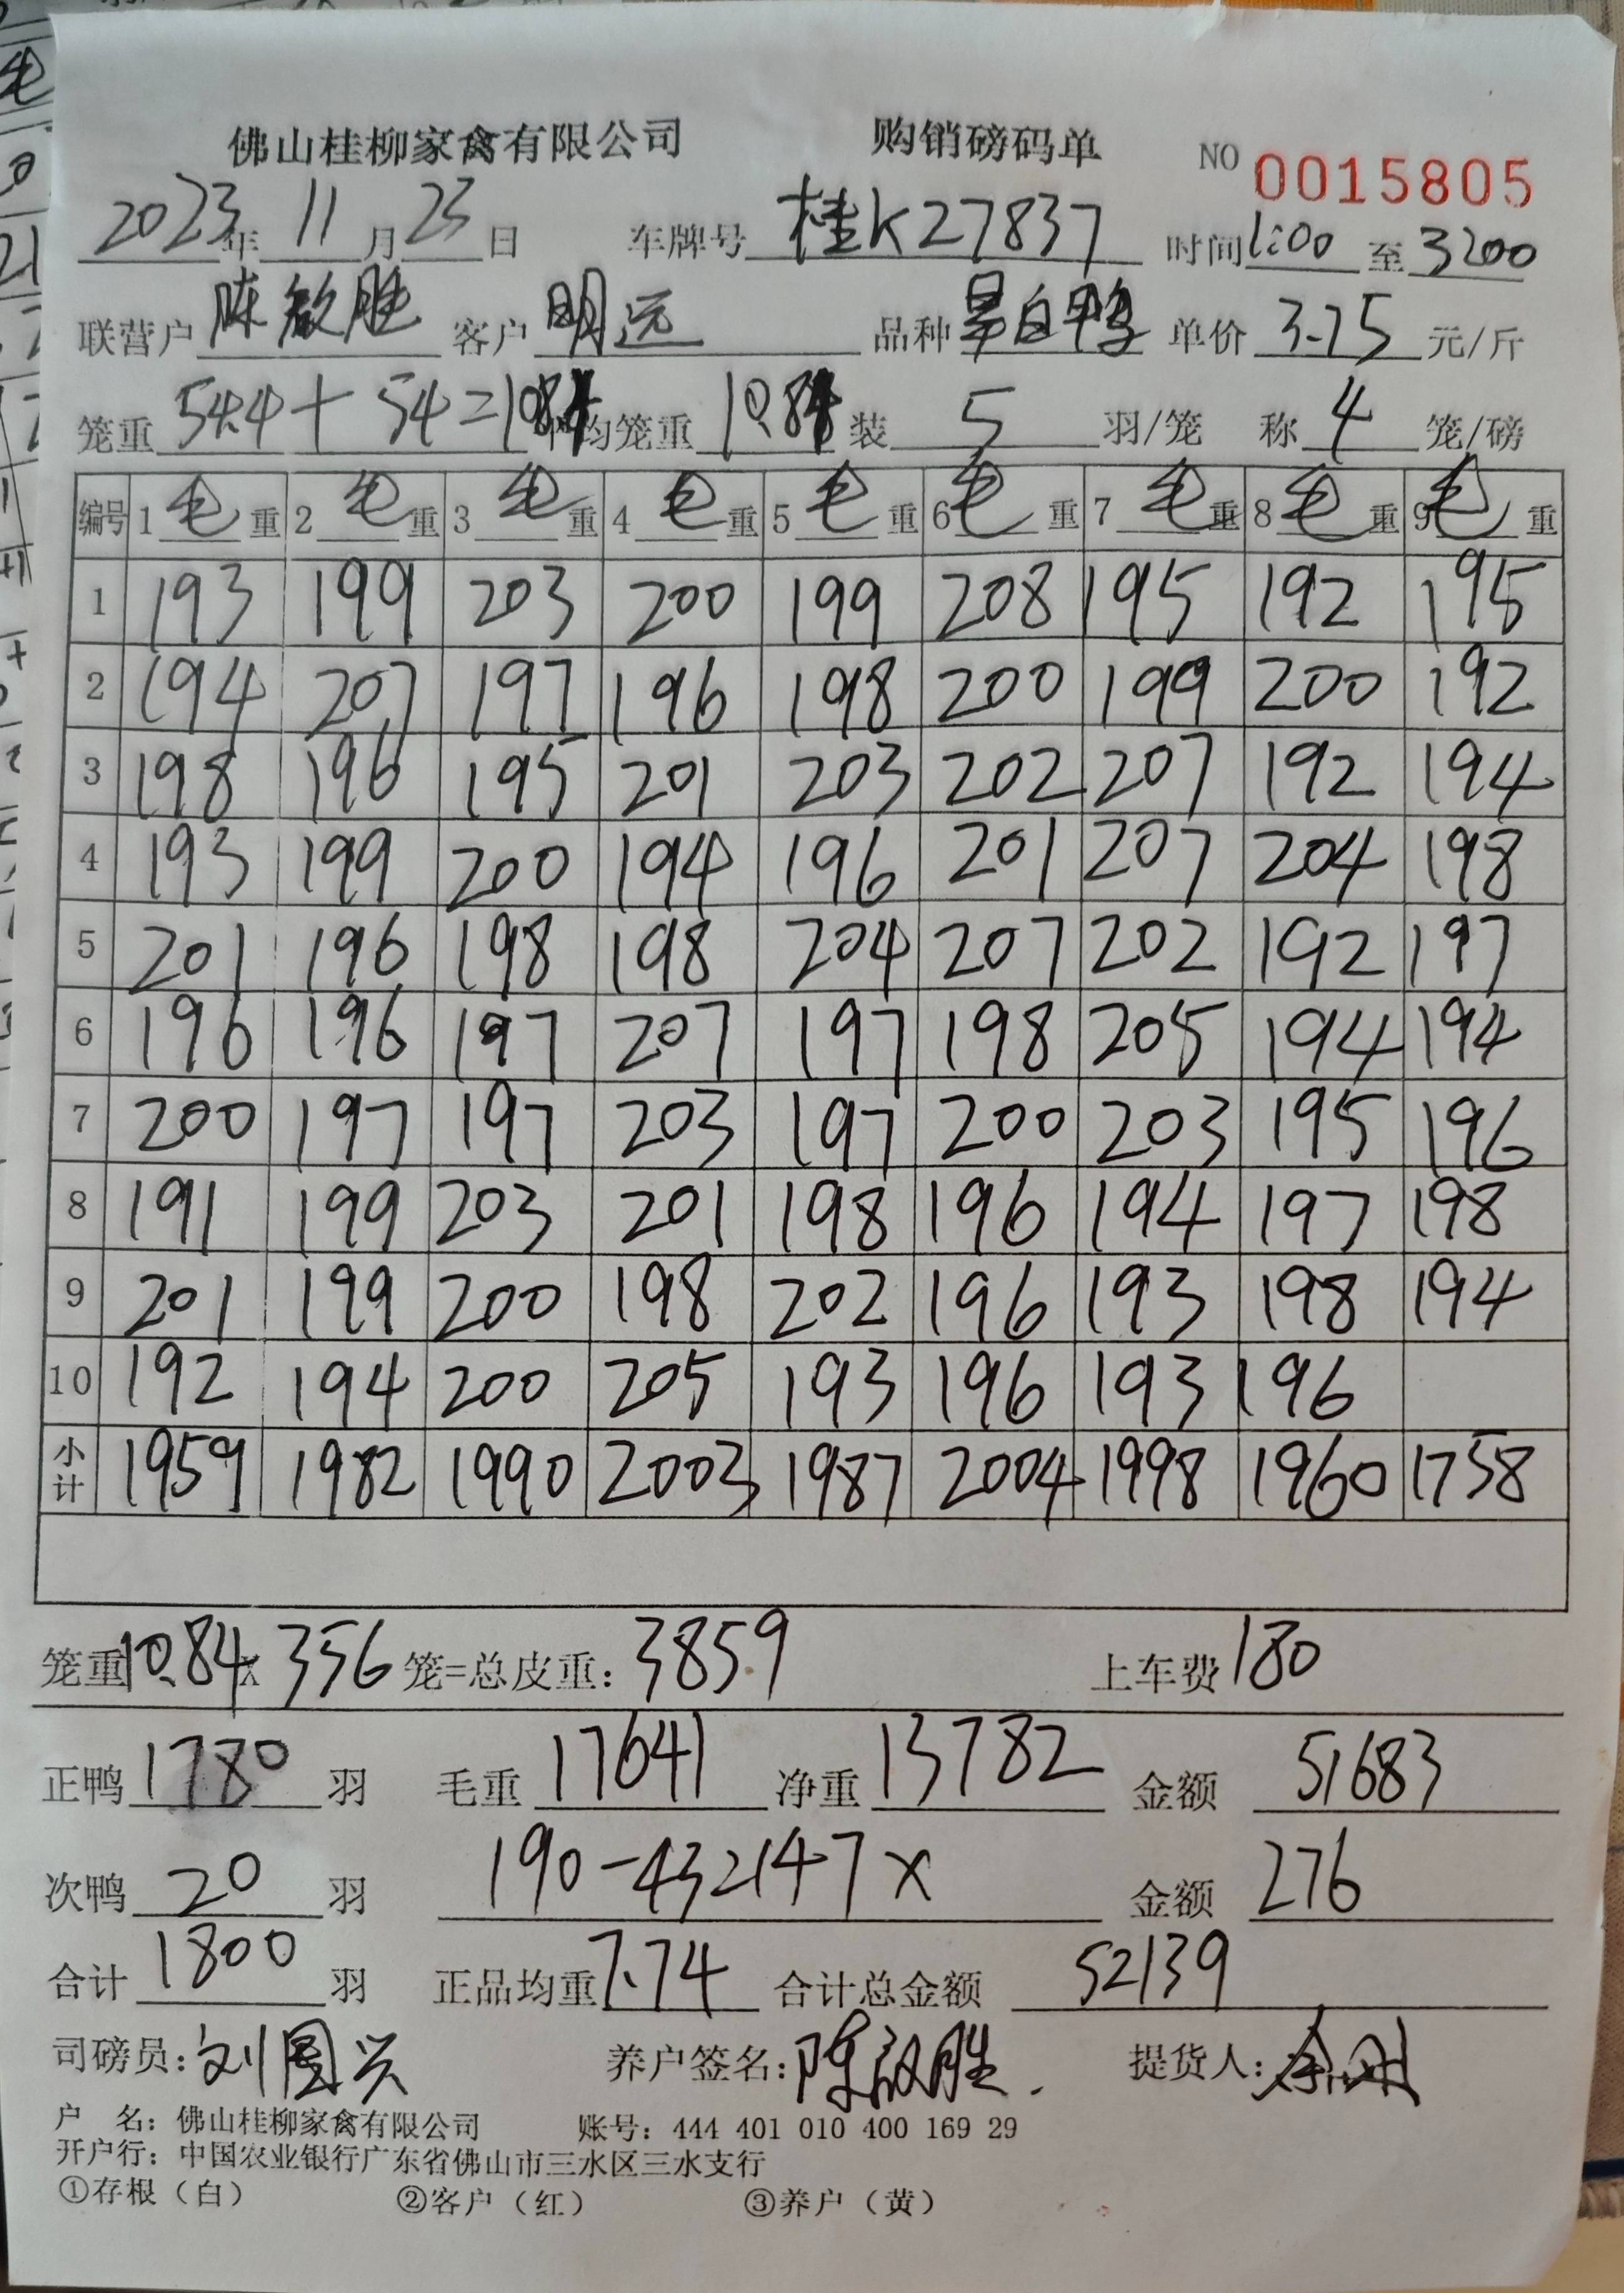 佛山桂柳家禽有限公司 购销磅码单 NO 0015805
2023年 11 月 23 日 车牌号 桂K27837 时间 1:00 至 3:00
联营户 陈敏胜 客户 明远 品种 白鸭 单价 3.75 元/斤
笼重 54.4+54=108.4 平均笼重 10.84 装 5 羽/笼 称 4 笼/磅
编号 1 毛 重 2 毛 重 3 毛 重 4 毛 重 5 毛 重 6 毛 重 7 毛 重 8 毛 重 9 毛 重
1 193 199 203 200 199 208 195 192 195
2 194 207 197 196 198 200 199 200 192
3 198 196 195 201 203 202 207 192 194
4 193 199 200 194 196 201 207 204 198
5 201 196 198 198 204 207 202 192 197
6 196 196 197 207 197 198 205 194 194
7 200 197 197 203 197 200 203 195 196
8 191 199 203 201 198 196 194 197 198
9 201 199 200 198 202 196 193 198 194
10 192 194 200 205 193 196 193 196
小计 1959 1982 1990 2003 1987 2004 1998 1960 1758
笼重 10.84 x 356 笼=总皮重: 3859 上车费 180
正鸭 1780 羽 毛重 17641 净重 13782 金额 51683
次鸭 20 羽 190-43=147x 金额 276
合计 1800 羽 正品均重 7.74 合计总金额 52139
司磅员: 刘国兴 养户签名: 陈敏胜. 提货人:
户 名: 佛山桂柳家禽有限公司 账号: 444 401 010 400 169 29
开户行: 中国农业银行广东省佛山市三水区三水支行
①存根（白） ②客户（红） ③养户（黄）